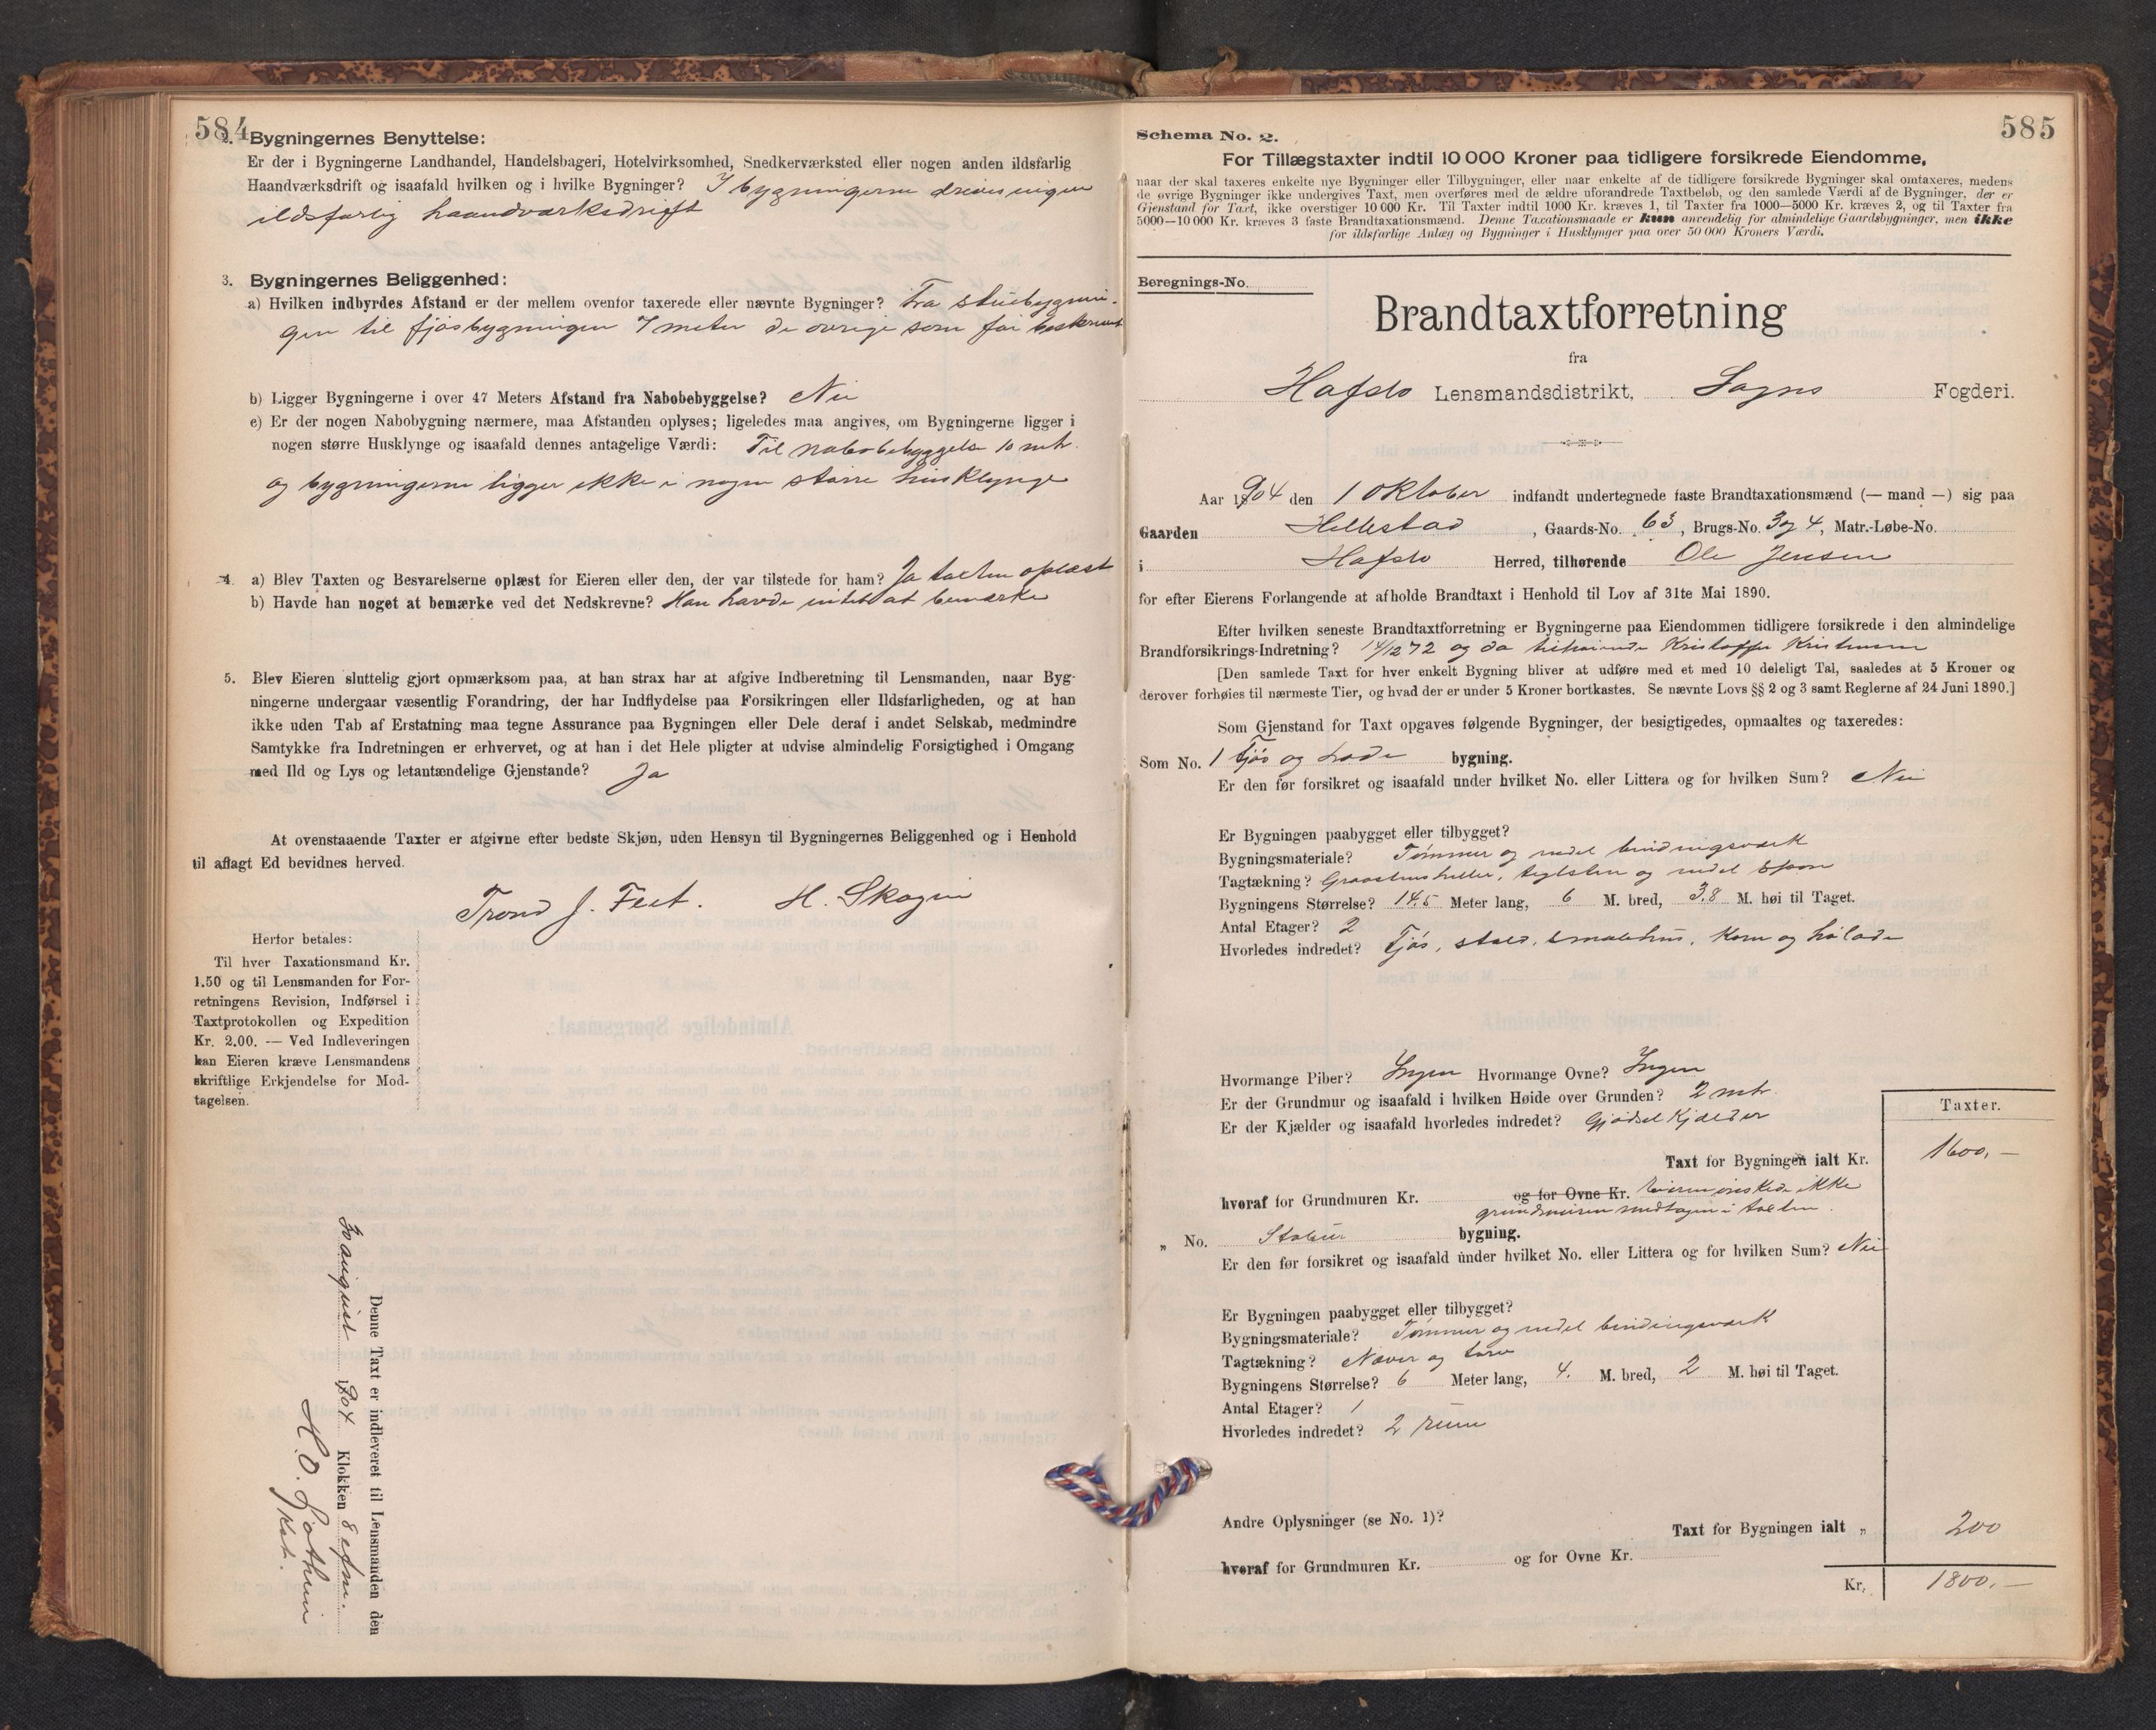 584
2. Bygningernes Benyttelse:
Er der i Bygningerne Landhandel, Handelsbageri, Hotelvirksomhed, Snedkerværksted eller nogen anden ildsfarlig
Haandværksdrift og isaafald hvilken og i hvilke Bygninger? I bygningerne drives ingen
ildsfarlig haandværksdrift
3. Bygningernes Beliggenhed:
a) Hvilken indbyrdes Afstand er der mellem ovenfor taxerede eller nævnte Bygninger? Fra stuebygnin-
gen til fjøsbygningen 7 meter de øvrige som før beskrevet
b) Ligger Bygningerne i over 47 Meters Afstand fra Nabobebyggelse? Nei
c) Er der nogen Nabobygning nærmere, maa Afstanden oplyses; ligeledes maa angives, om Bygningerne ligger i
nogen større Husklynge og isaafald dennes antagelige Værdi: Til nabobebyggelse 10 mtr.
og bygningerne ligger ikke i nogen større husklynge
4. a) Blev Taxten og Besvarelserne oplæst for Eieren eller den, der var tilstede for ham? Ja taxten oplæst
b) Havde han noget at bemærke ved det Nedskrevne? Han havde intet at bemærke
5. Blev Eieren sluttelig gjort opmærksom paa, at han strax har at afgive Indberetning til Lensmanden, naar Byg-
ningerne undergaar væsentlig Forandring, der har Indflydelse paa Forsikringen eller Ildsfarligheden, og at han
ikke uden Tab af Erstatning maa tegne Assurance paa Bygningen eller Dele deraf i andet Selskab, medmindre
Samtykke fra Indretningen er erhvervet, og at han i det Hele pligter at udvise almindelig Forsigtighed i Omgang
med Ild og Lys og letantændelige Gjenstande? Ja
At ovenstaaende Taxter er afgivne efter bedste Skjøn, uden Hensyn til Bygningernes Beliggenhed og i Henhold
til aflagt Ed bevidnes herved.
Trond J. Feet. H. Skagen
Herfor betales:
Til hver Taxationsmand Kr.
1.50 og til Lensmanden for For-
retningens Revision, Indførsel i
Taxtprotokollen og Expedition
Kr. 2.00. — Ved Indleveringen
kan Eieren kræve Lensmandens
skriftlige Erkjendelse for Mod-
tagelsen.
Denne Taxt er indleveret til Lensmanden den
august 1904 Klokken 8 efm.
H. O.
585
Schema No. 2.
For Tillægstaxter indtil 10 000 Kroner paa tidligere forsikrede Eiendomme,
naar der skal taxeres enkelte nye Bygninger eller Tilbygninger, eller naar enkelte af de tidligere forsikrede Bygninger skal omtaxeres, medens
de øvrige Bygninger ikke undergives Taxt, men overføres med de ældre uforandrede Taxtbeløb, og den samlede Værdi af de Bygninger, der er
Gjenstand for Taxt, ikke overstiger 10 000 Kr. Til Taxter indtil 1000 Kr. kræves 1, til Taxter fra 1000—5000 Kr. kræves 2, og til Taxter fra
5000—10 000 Kr. kræves 3 faste Brandtaxationsmænd. Denne Taxationsmaade er kun anvendelig for almindelige Gaardsbygninger, men ikke
for ildsfarlige Anlæg og Bygninger i Husklynger paa over 50 000 Kroners Værdi.
Beregnings-No.
Brandtaxtforretning
fra
Hafslo Lensmandsdistrikt, Sogns Fogderi.
Aar 1904 den 1 Oktober indfandt undertegnede faste Brandtaxationsmænd (— mand —) sig paa
Gaarden Hillestad, Gaards-No. 63, Brugs-No. 3 og 4, Matr.-Løbe-No.
i Hafslo Herred, tilhørende Ole Jensen
for efter Eierens Forlangende at afholde Brandtaxt i Henhold til Lov af 31te Mai 1890.
Efter hvilken seneste Brandtaxtforretning er Bygningerne paa Eiendommen tidligere forsikrede i den almindelige
Brandforsikrings-Indretning? 14/12 72 og da tilhørende Kristoffer Kristensen
[Den samlede Taxt for hver enkelt Bygning bliver at udføre med et med 10 deleligt Tal, saaledes at 5 Kroner og
derover forhøies til nærmeste Tier, og hvad der er under 5 Kroner bortkastes. Se nævnte Lovs §§ 2 og 3 samt Reglerne af 24 Juni 1890.]
Som Gjenstand for Taxt opgaves følgende Bygninger, der besigtigedes, opmaaltes og taxeredes:
Som No. 1 Fjøs og Lade bygning.
Er den før forsikret og isaafald under hvilket No. eller Littera og for hvilken Sum? Nei
Er Bygningen paabygget eller tilbygget?
Bygningsmateriale? Tømmer og endel bindingsværk
Tagtækning? Graastensheller, teglsten og endel spaan
Bygningens Størrelse? 14,5 Meter lang, 6 M. bred, 3,8 M. høi til Taget.
Antal Etager? 2
Hvorledes indredet? Fjøs, stald, smalehus, korn og hølade
Hvormange Piber? Ingen Hvormange Ovne? Ingen
Er der Grundmur og isaafald i hvilken Høide over Grunden? 2 mtr.
Er der Kjælder og isaafald hvorledes indredet? Gjødselkjælder
Taxter.
Taxt for Bygningen ialt Kr. 1600,—
hvoraf for Grundmuren Kr. og for Ovne Kr. Eieren ønskede ikke
grundmuren medtagen i taxten.
„ No. Stabur bygning.
Er den før forsikret og isaafald under hvilket No. eller Littera og for hvilken Sum? Nei
Er Bygningen paabygget eller tilbygget?
Bygningsmateriale? Tømmer og endel bindingsværk
Tagtækning? Næver og torv
Bygningens Størrelse? 6 Meter lang, 4. M. bred, 2 M. høi til Taget.
Antal Etager? 1
Hvorledes indredet? 2 rum
Andre Oplysninger (se No. 1)?
Taxt for Bygningen ialt „ 200
hvoraf for Grundmuren Kr. og for Ovne Kr.
Kr. 1800,—